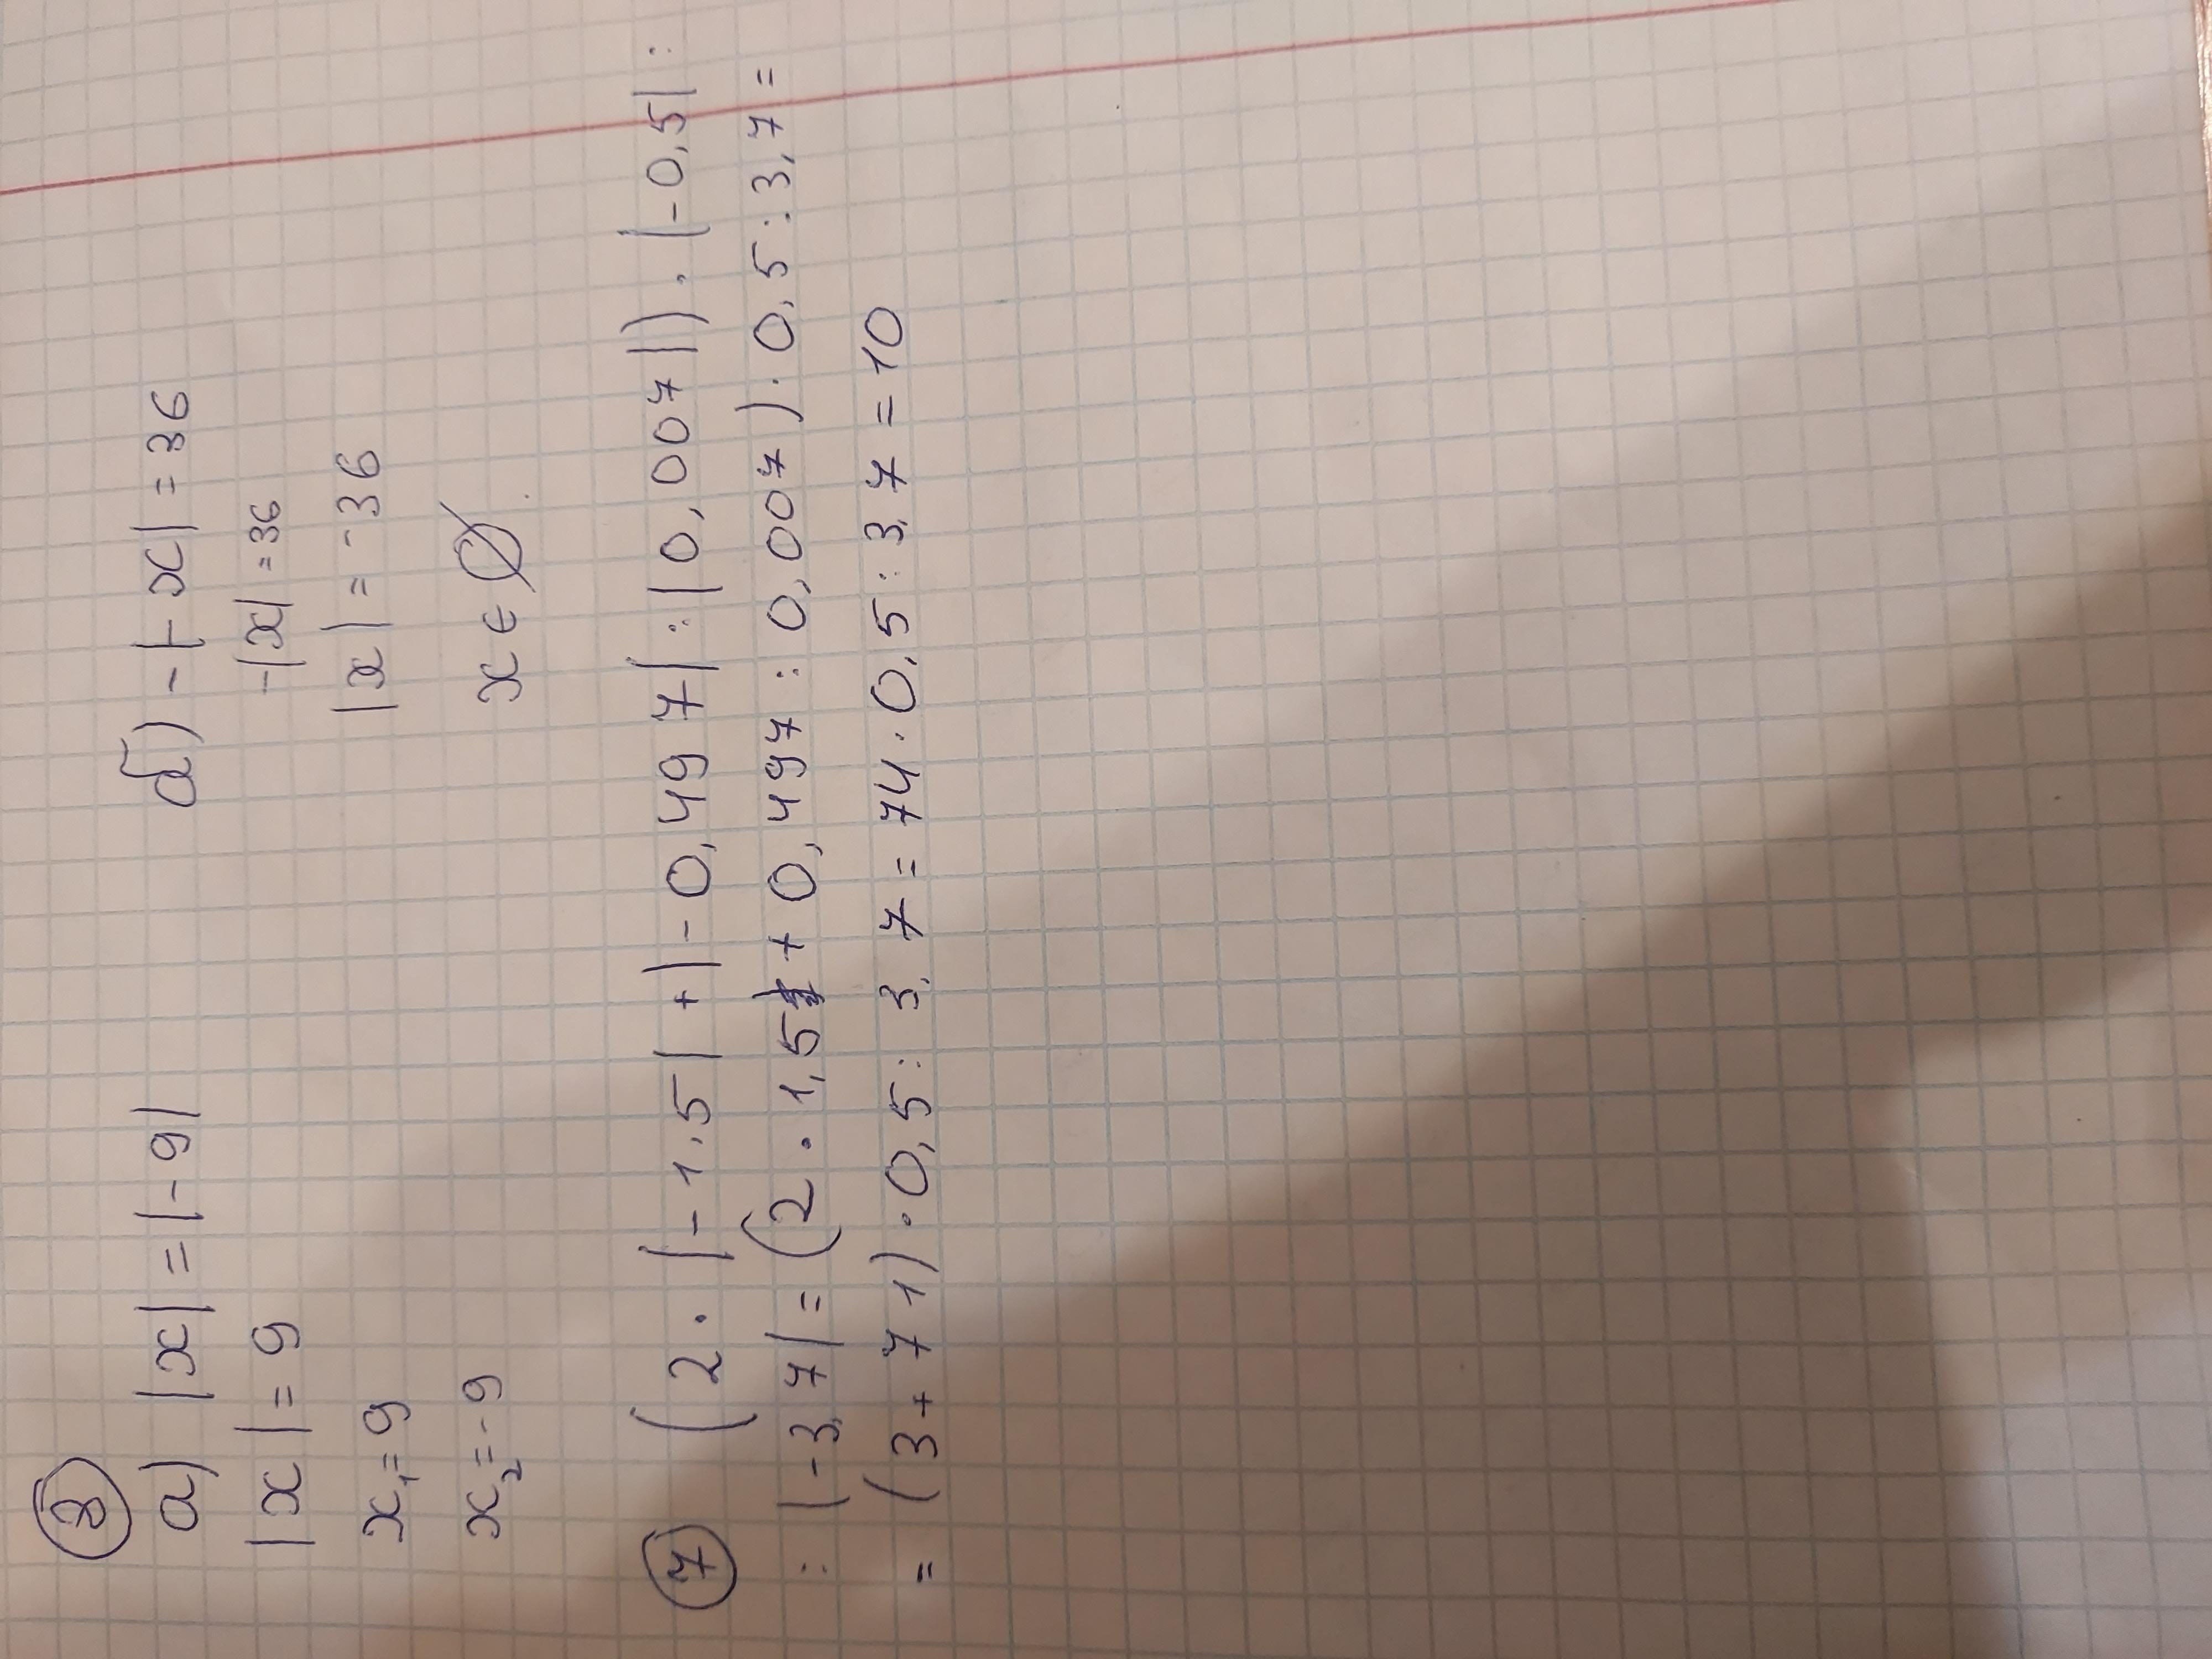 ③
а) |x| = |-9|
|x| = 9
x₁ = 9
x₂ = -9
б) -|-x| = 36
-|x| = 36
|x| = -36
x ∈ ∅
⑦ (2 · |-1,5| + |-0,497| : |0,007|) · |-0,5| :
: |-3,7| = (2 · 1,5 + 0,497 : 0,007) · 0,5 : 3,7 =
= (3 + 71) · 0,5 : 3,7 = 74 · 0,5 : 3,7 = 10